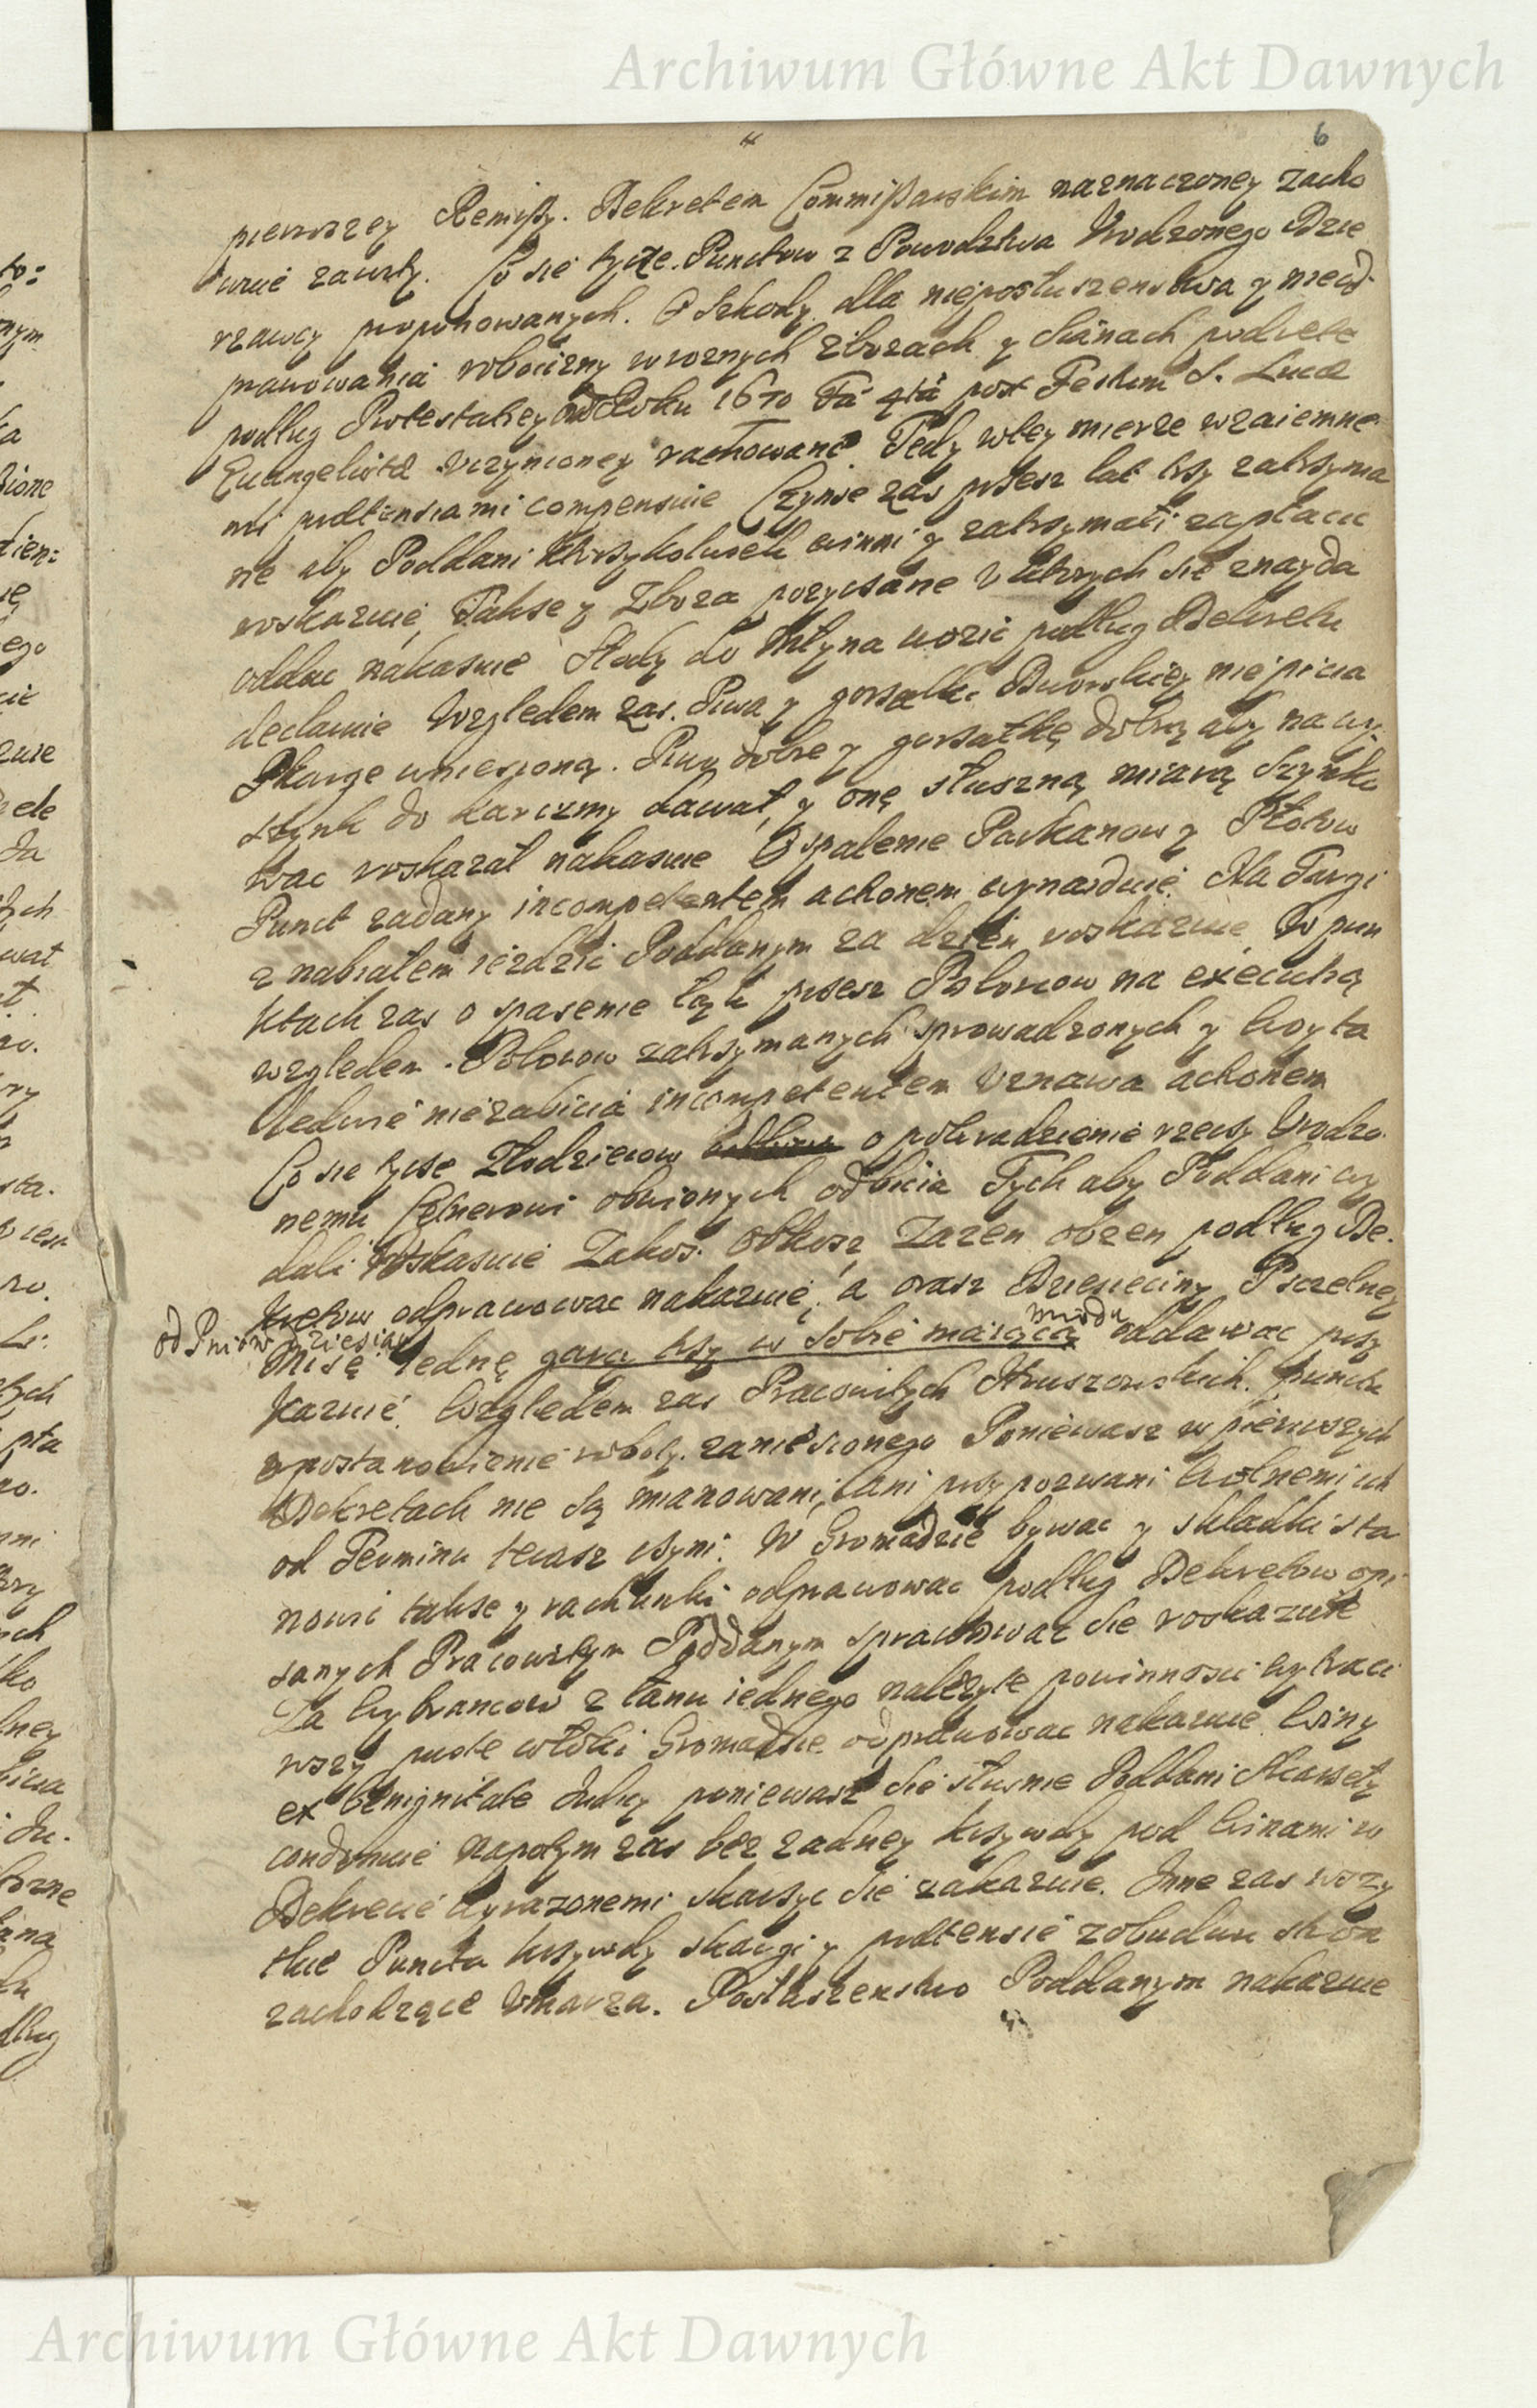 Archiwum Główne Akt Dawnych
6
pierwszey Remissy. Dekretem Commissarskim naznaczoney zacho
wuie zawsty. Co sie tycze Punctow z Powodztwa Urodzonego Dzie
rzawcy proponowanych. O Szkody dla nieposłuszenstwa y nieod
prawowania robocizny w roznych zbozach y Sianach podięte
podług Protestatiey Roku 1670 post Festum S. Lucæ
Euangelistæ uczynioney rachowane Tedy wtey mierze wzaiemne
mi prætensiami compensuie Czynsze zas przesz lat trsy zatrsyma
ne aby Poddani ktorsykolwiek winni y zatrsymali zapłacic
roskazuie, Taksze y Zboza pozyczane u ktorych sie znayda
oddac nakasuie Słody do Młyna wozic podług Dekretu
declaruie Względem zas Piwa y gorsałki Dworskiey niepicia
Skargę wniesioną. Piwo dobre y gorsałkę dobrą aby na wy
szynk do karczmy dawał, y onę słuszną miarą szynko
wac roskazał nakasuie O spalenie Parkanow y Płotow
Punct zadany incompetentem actionem wynayduie. Na Targi
z nabiałem iezdzic Poddanym za dzien roskazuie. W pun
ktach zas o spasenie łąk przesz Polowcow na executią
względem Polowow zatrsymanych sprowadzonych y Woyta
niezabicia incompetentem uznawa actionem
Co sie tycse Złodzieiow o pokradzienie rzeczy Urodzo
nemu obwionych odbicia Tych aby Poddani wy
dali Roskasuie Zakos Obkosz Zazen obzen podług De
kretow odprawowac nakazuie, a orasz Dziesieciny Psczelney
od Pniow dziesiąc
miodu
Misę iednę garcy trsy w sobie maiącą oddawac przy
kazuie. Względem zas Pracowitych Hruszowskich punctu
o postanowienie roboty zaniesionego Poniewasz w pierwszych
Dekretach nie są mianowani, ani przypozwani Wolnemi ich
od Terminu terasz czyni. W Gromadzie bywac y składki sta
nowic taksze y rachunki odprawowac podług Dekretow opi
sanych Pracowitym Poddanym sprawowac sie roskazuie
Za Wybrancow z łanu iednego nalezyte powinnosci wytraci
wszy puste włoki Gromadzie odprawowac nakazuie. Winy
ex benignitate Judicy poniewasz sie słusnie Poddani skarzeły
condonuie napotym zas bez zadney krzywdy pod Winami w
Dekrecie wyrazonemi skarsyc sie zakazuie. Inne zas wszy
tkie Puncta krsywdy skargi y prætensie zobudwu stron
zachodzące umarza. Posłuszenstwo Poddanym nakazuie
Archiwum Główne Akt Dawnych